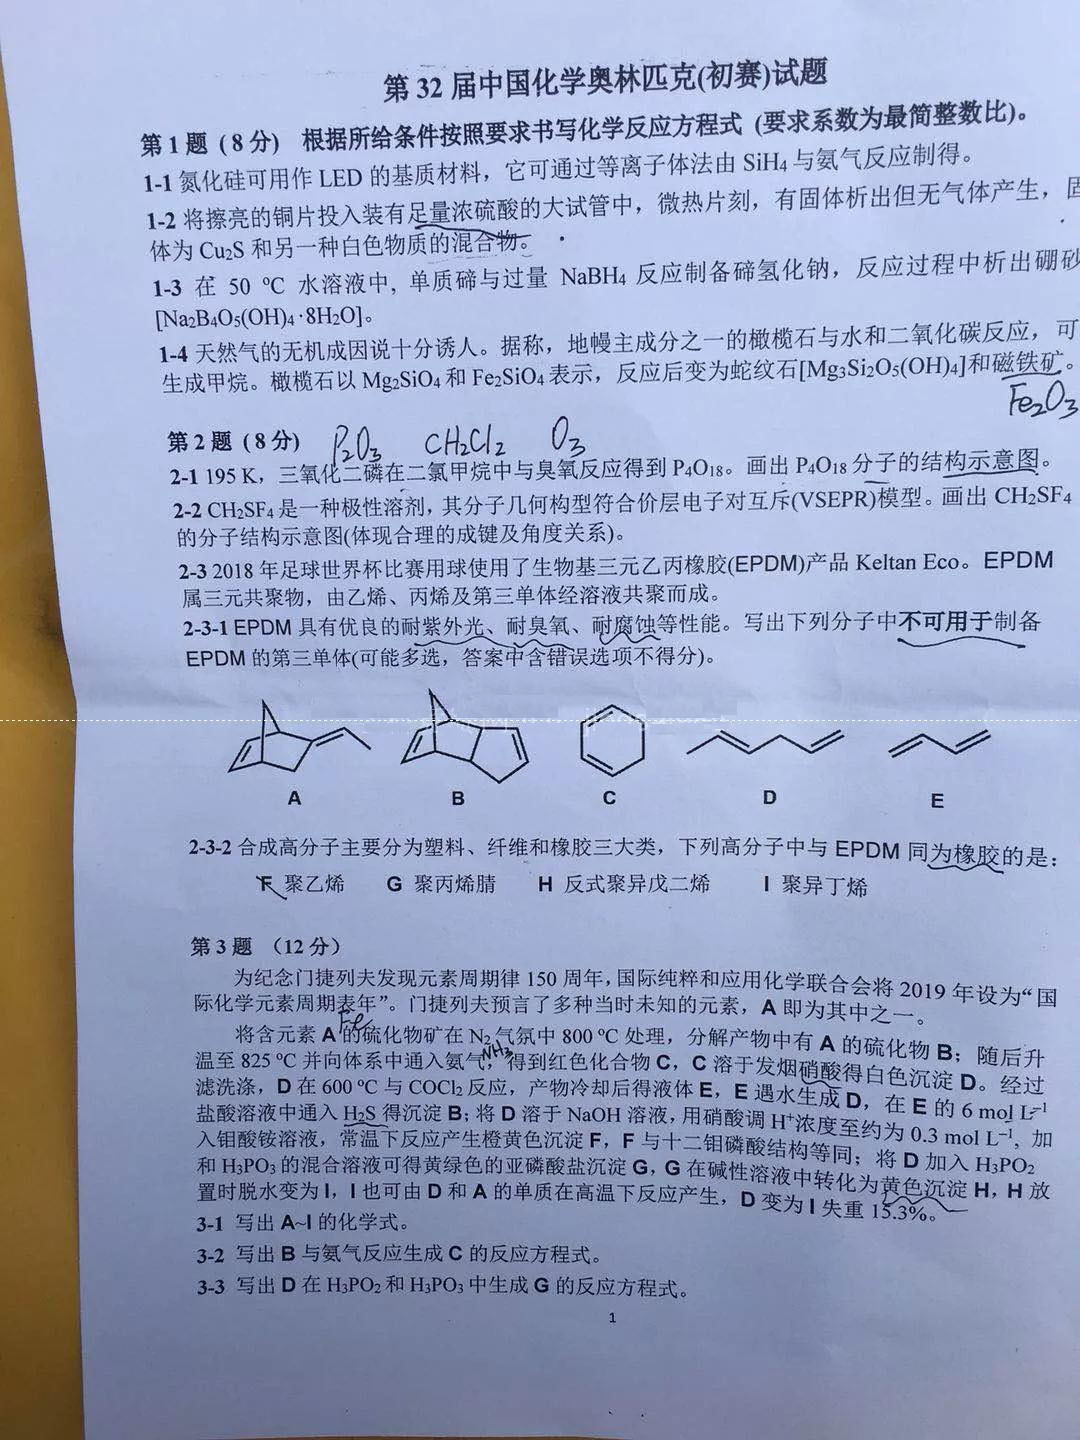 第 32 届中国化学奥林匹克(初赛)试题
第 1 题 ( 8 分) 根据所给条件按照要求书写化学反应方程式 (要求系数为最简整数比)。
1-1 氮化硅可用作 LED 的基质材料，它可通过等离子体法由 SiH4 与氨气反应制得。
1-2 将擦亮的铜片投入装有足量浓硫酸的大试管中，微热片刻，有固体析出但无气体产生，固
体为 Cu2S 和另一种白色物质的混合物。
1-3 在 50 ℃ 水溶液中, 单质碲与过量 NaBH4 反应制备碲氢化钠，反应过程中析出硼砂
[Na2B4O5(OH)4·8H2O]。
1-4 天然气的无机成因说十分诱人。据称，地幔主成分之一的橄榄石与水和二氧化碳反应，可
生成甲烷。橄榄石以 Mg2SiO4 和 Fe2SiO4 表示，反应后变为蛇纹石[Mg3Si2O5(OH)4]和磁铁矿。
Fe2O3
第 2 题 ( 8 分) P2O3 CH2Cl2 O3
2-1 195 K，三氧化二磷在二氯甲烷中与臭氧反应得到 P4O18。画出 P4O18 分子的结构示意图。
2-2 CH2SF4 是一种极性溶剂，其分子几何构型符合价层电子对互斥(VSEPR)模型。画出 CH2SF4
的分子结构示意图(体现合理的成键及角度关系)。
2-3 2018 年足球世界杯比赛用球使用了生物基三元乙丙橡胶(EPDM)产品 Keltan Eco。EPDM
属三元共聚物，由乙烯、丙烯及第三单体经溶液共聚而成。
2-3-1 EPDM 具有优良的耐紫外光、耐臭氧、耐腐蚀等性能。写出下列分子中不可用于制备
EPDM 的第三单体(可能多选，答案中含错误选项不得分)。
A B C D E
2-3-2 合成高分子主要分为塑料、纤维和橡胶三大类，下列高分子中与 EPDM 同为橡胶的是：
F 聚乙烯 G 聚丙烯腈 H 反式聚异戊二烯 I 聚异丁烯
第 3 题 （12 分）
为纪念门捷列夫发现元素周期律 150 周年，国际纯粹和应用化学联合会将 2019 年设为“国
际化学元素周期表年”。门捷列夫预言了多种当时未知的元素，A 即为其中之一。
Fe
将含元素 A 的硫化物矿在 N2 气氛中 800 ℃ 处理，分解产物中有 A 的硫化物 B；随后升
NH3
温至 825 ℃ 并向体系中通入氨气，得到红色化合物 C，C 溶于发烟硝酸得白色沉淀 D。经过
滤洗涤，D 在 600 ℃ 与 COCl2 反应，产物冷却后得液体 E，E 遇水生成 D，在 E 的 6 mol L-1
盐酸溶液中通入 H2S 得沉淀 B；将 D 溶于 NaOH 溶液，用硝酸调 H+浓度至约为 0.3 mol L-1, 加
入钼酸铵溶液，常温下反应产生橙黄色沉淀 F，F 与十二钼磷酸结构等同；将 D 加入 H3PO2
和 H3PO3 的混合溶液可得黄绿色的亚磷酸盐沉淀 G，G 在碱性溶液中转化为黄色沉淀 H，H 放
置时脱水变为 I，I 也可由 D 和 A 的单质在高温下反应产生，D 变为 I 失重 15.3%。
3-1 写出 A~I 的化学式。
3-2 写出 B 与氨气反应生成 C 的反应方程式。
3-3 写出 D 在 H3PO2 和 H3PO3 中生成 G 的反应方程式。
1